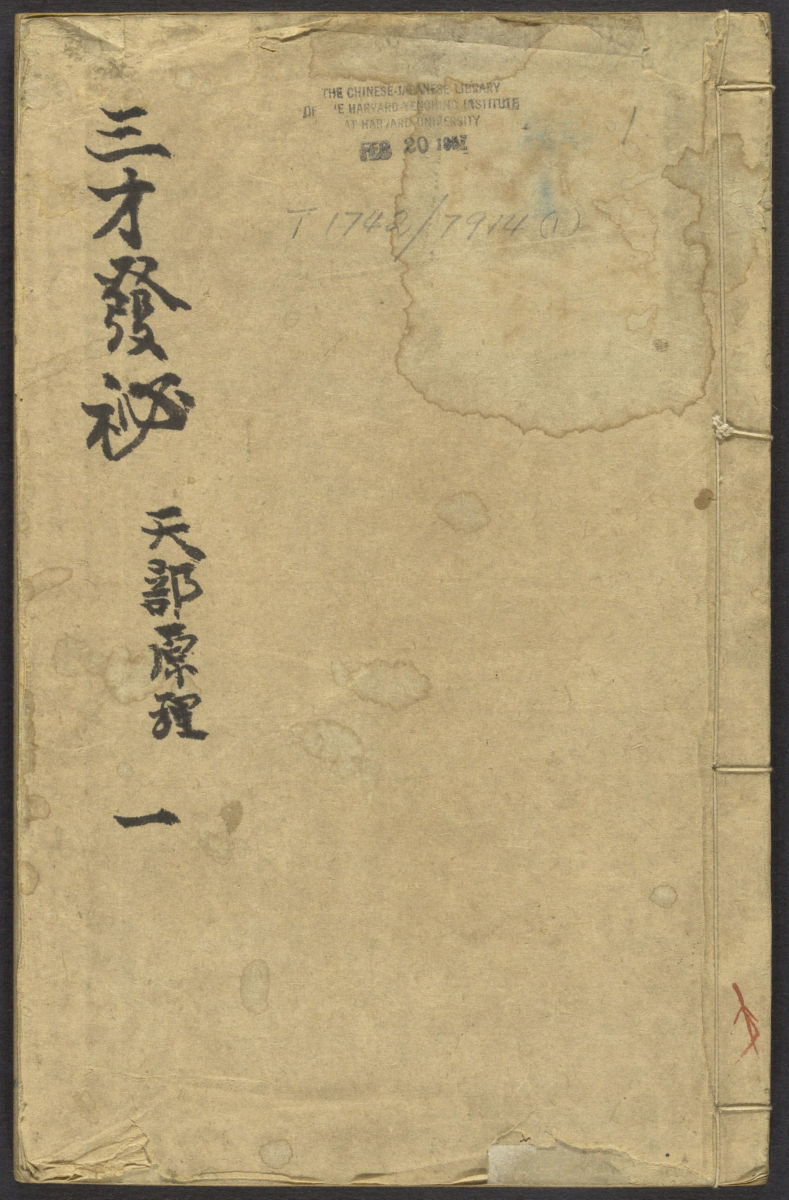 三才發祕
天部原理
一
THE CHINESE-JAPANESE LIBRARY
OF THE HARVARD-YENCHING INSTITUTE
AT HARVARD UNIVERSITY
FEB 20 1957
T 1742/7914 (1)
1